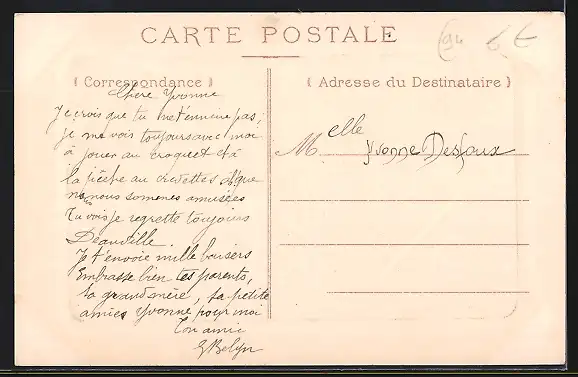 CARTE POSTALE
94 6 €
( Correspondance )
( Adresse du Destinataire )
Chere Yvonne
Je crois que tu ne t'ennuie pas,
je me vois toujours avec moi
à jouer au croquet et à
la pêche au crevettes et que
nous nous sommes amusées
Tu vois je regrette toujours
Deauville.
Je t'envoie mille baisers
Embrasse bien tes parents,
ta grand mère, ta petite
amies Yvonne pour moi
Ton amie
Melle
Yvonne